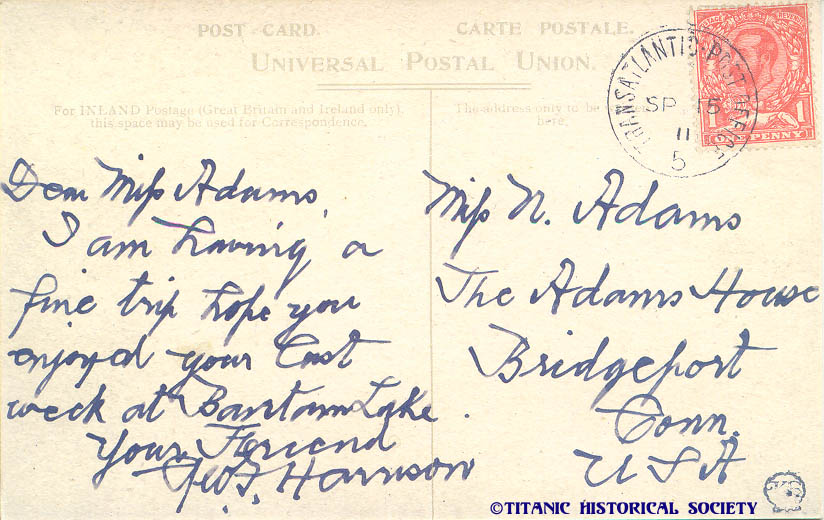 POST CARD.
CARTE POSTALE.
UNIVERSAL POSTAL UNION.
For INLAND Postage (Great Britain and Ireland only),
this space may be used for Correspondence.
The address only to be
here.
TRANSATLANTIC POST OFFICE
SP 15
11
5
POSTAGE REVENUE
ONE PENNY 1
Dear Miss Adams,
I am having a
fine trip hope you
enjoyed your last
week at Bantam Lake.
Your Friend
Harrison
Miss N. Adams
The Adams House
Bridgeport
Conn.
U S A
©TITANIC HISTORICAL SOCIETY